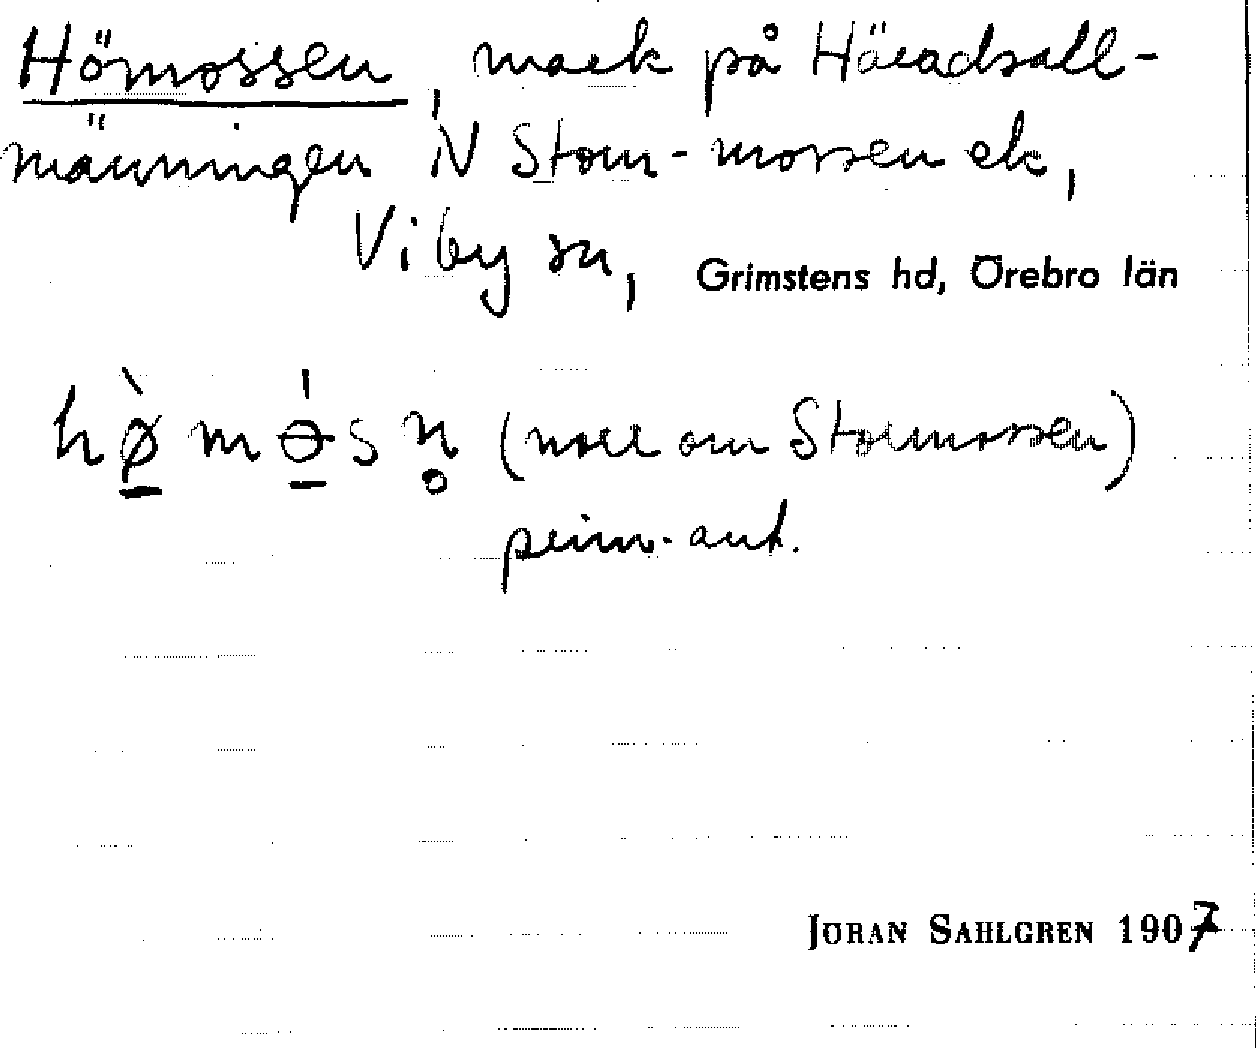 Hömossen, mark på Häradsall-
männingen N Storm-mossen ek,
Viby sn, Grimstens hd, Örebro län
hø̀mɵ́sn̥ (norr om Stormossen)
prim-ant.
JÖRAN SAHLGREN 1907